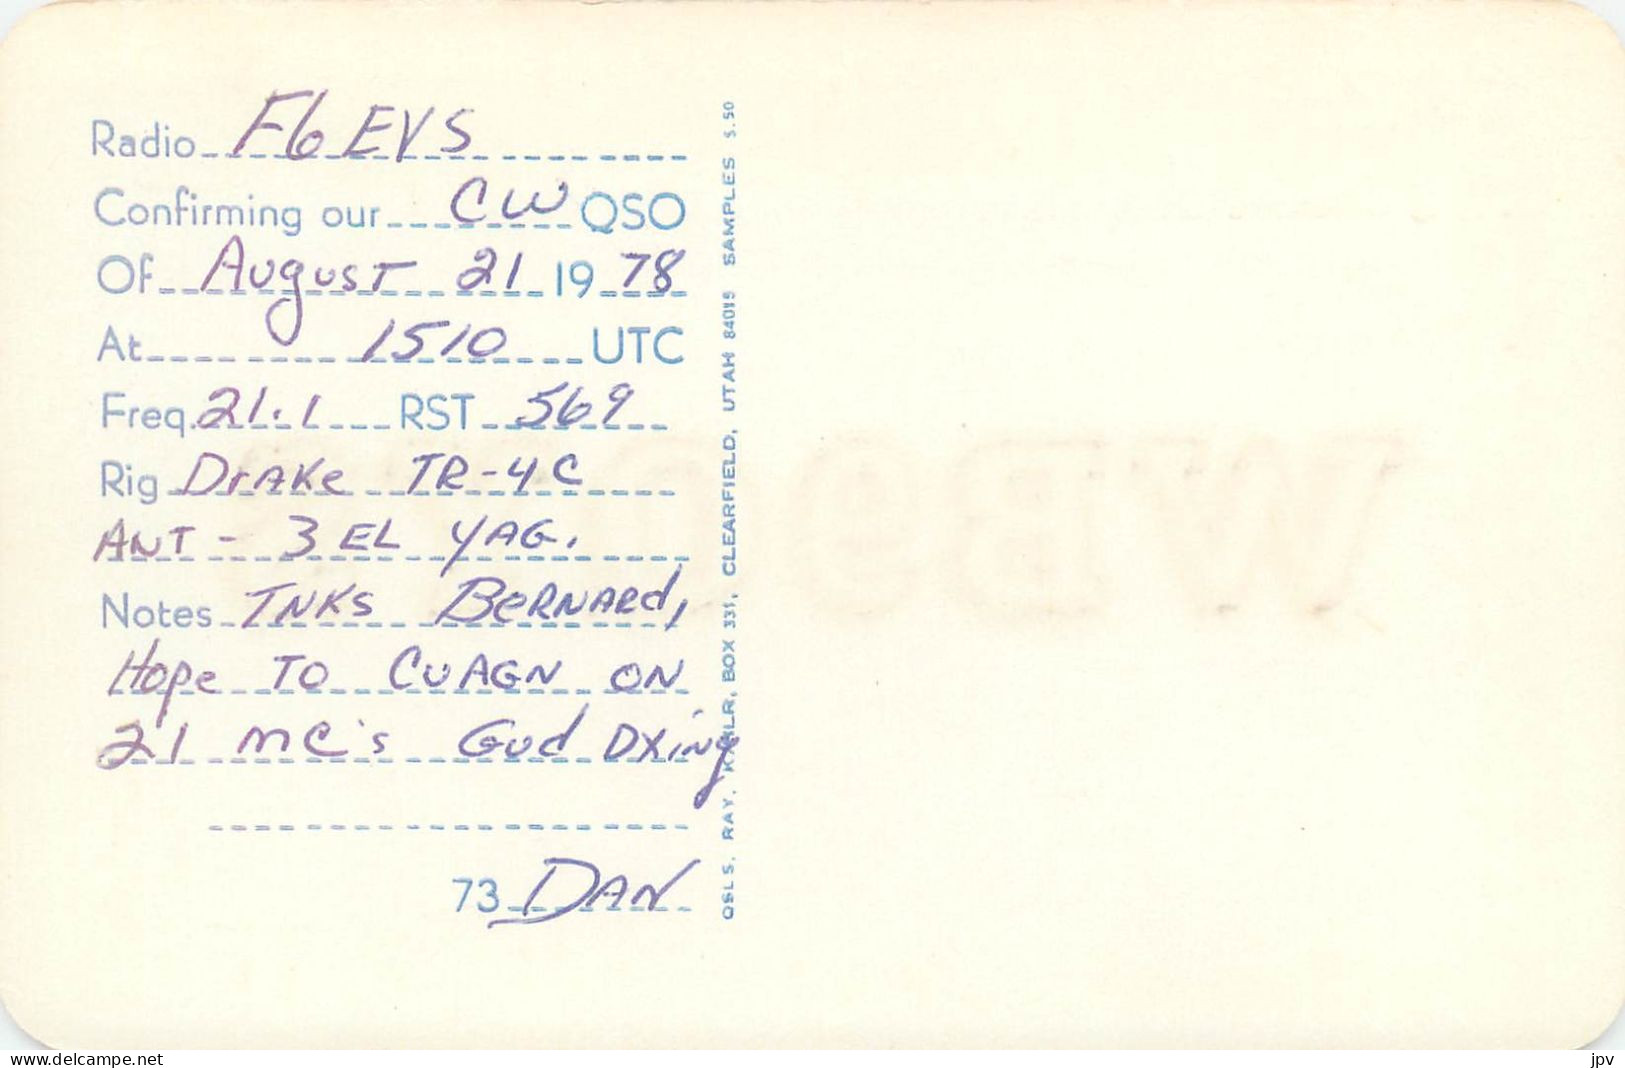 Radio F6EVS
Confirming our CW QSO
Of August 21 1978
At 1510 UTC
Freq. 21.1 RST 569
Rig Drake TR-4C
ANT - 3 EL YAG.
Notes TNKS BERNARd,
Hope TO CUAGN ON
21 MC's Gud DXing
73 DAN
QSLS, RAY, KAHLR, BOX 331, CLEARFIELD, UTAH 84015 SAMPLES $.50
www.delcampe.net
jpv